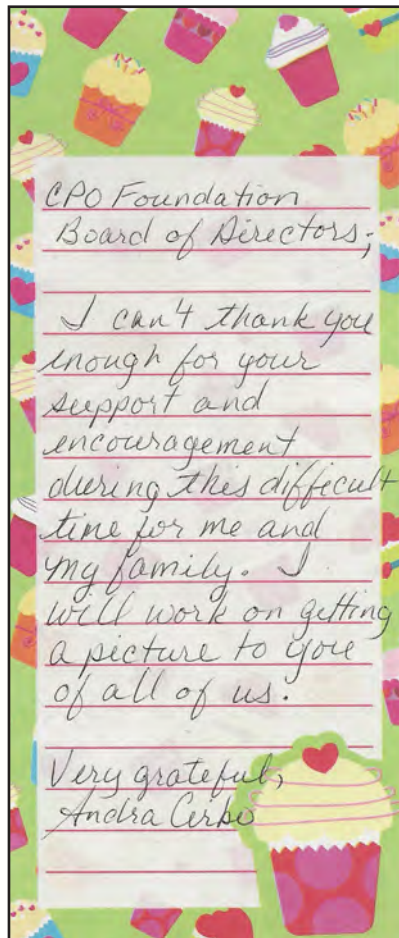 CPO Foundation
Board of Directors;
I can't thank you
enough for your
support and
encouragement
during this difficult
time for me and
my family. I
will work on getting
a picture to you
of all of us.
Very grateful,
Andra Cerbo